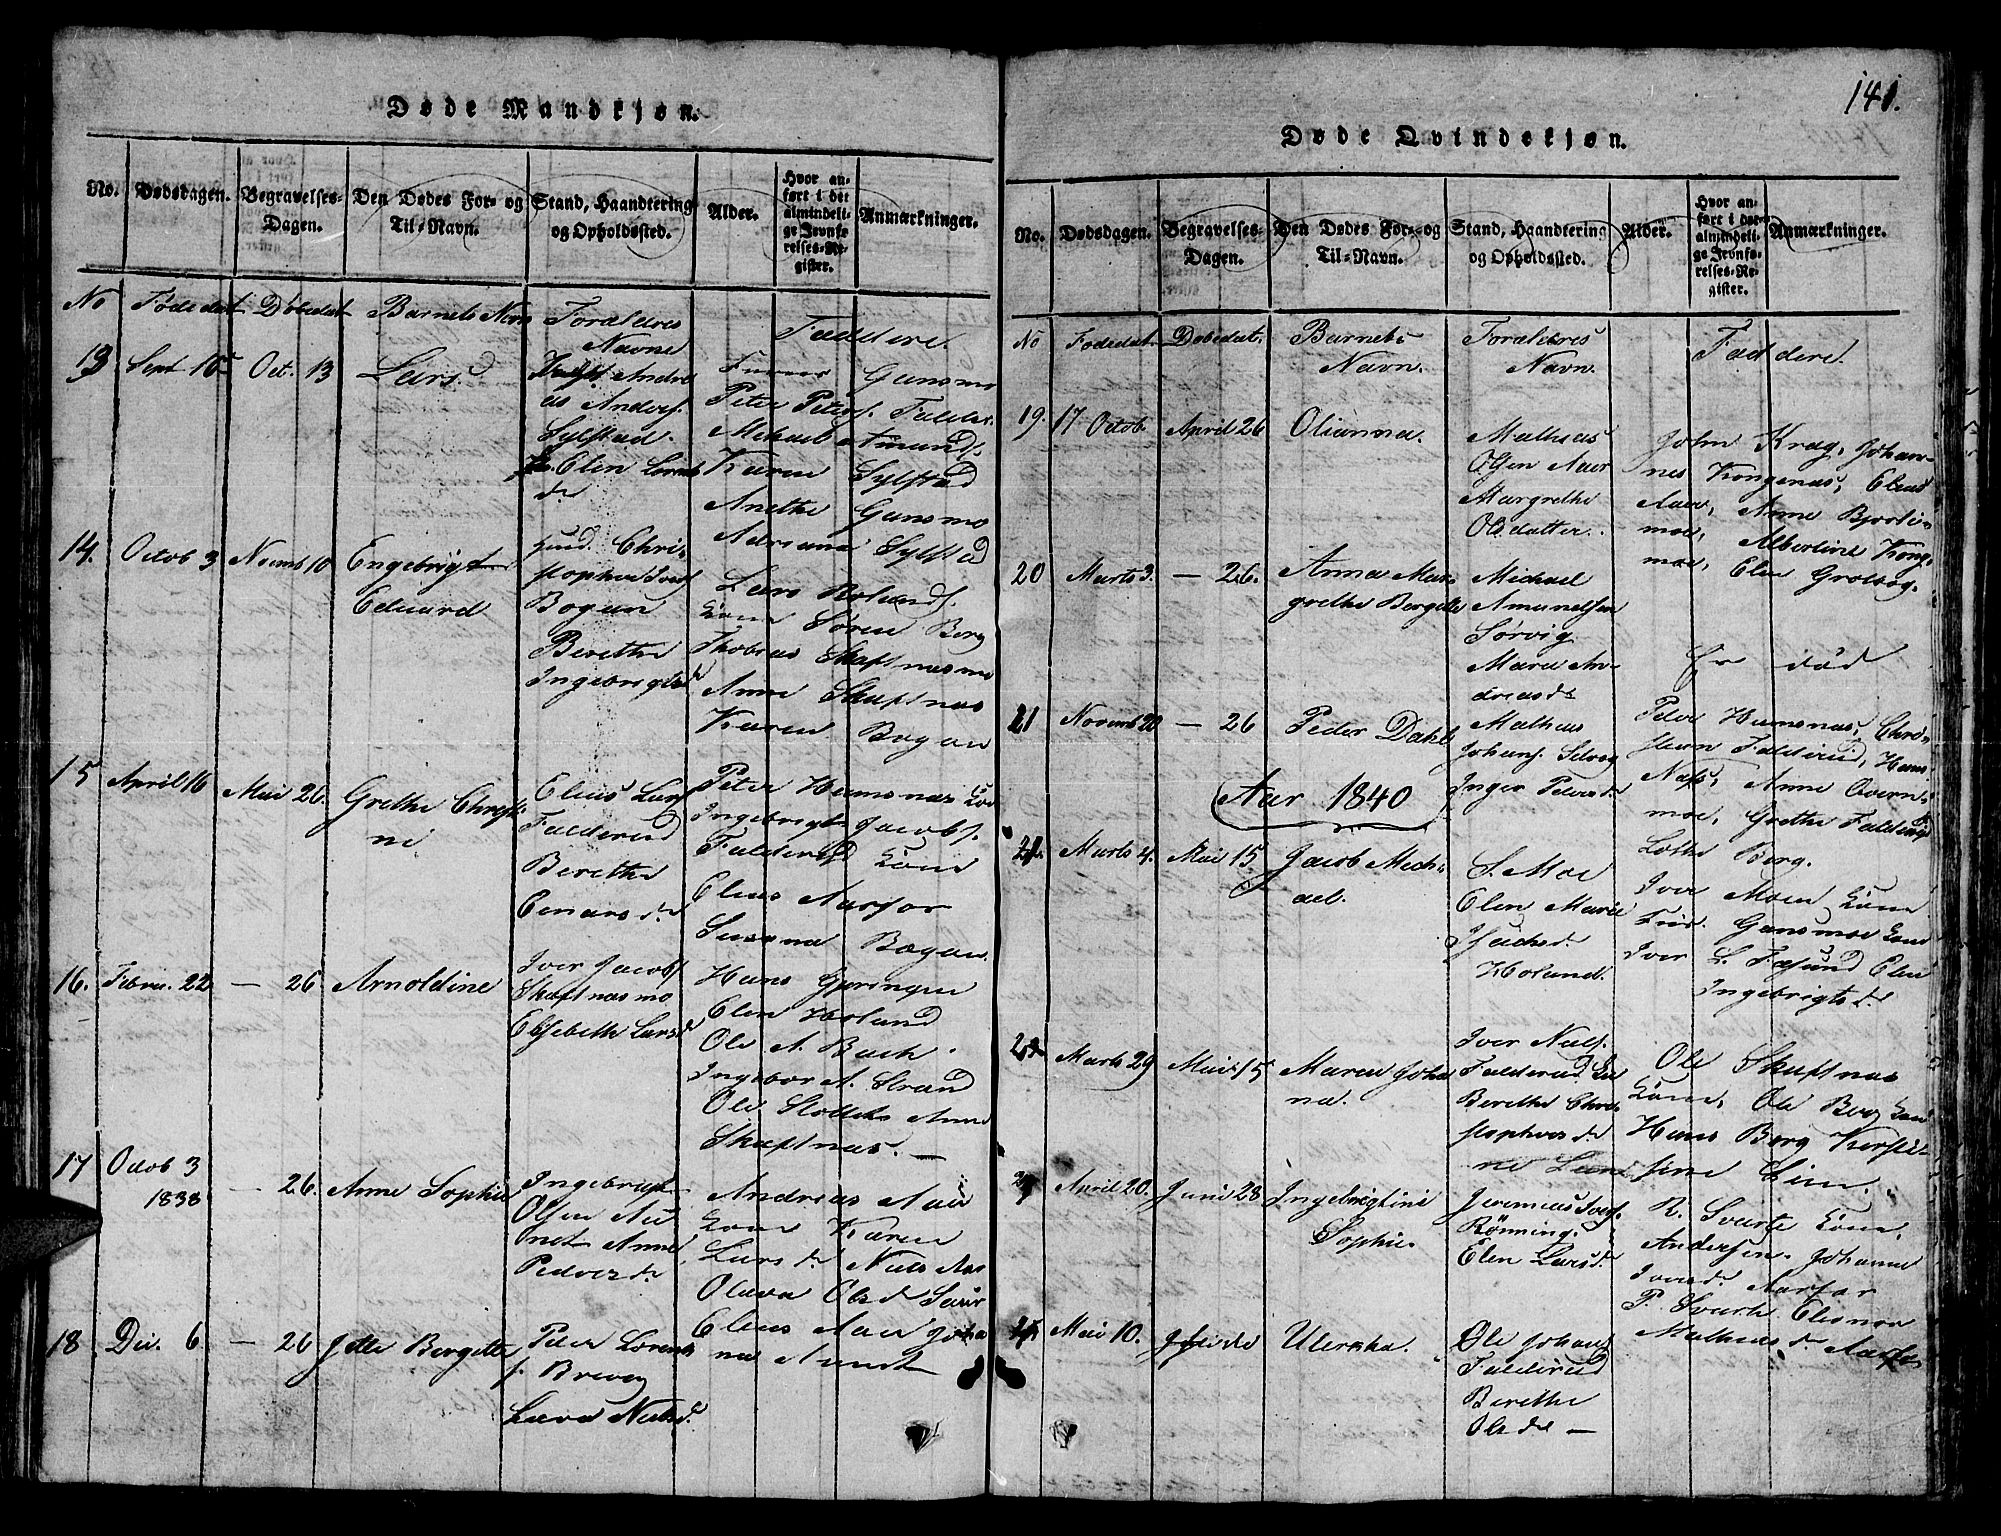 Døde Mandkjøn.
No.
Dødsdagen.
Begravelses-
Dagen.
Den Dødes For- og
Til-Navn.
Stand, Haandtering
og Opholdssted.
Alder.
Hvor an-
ført i det
almindeli-
ge Jevnfø-
relses-Re-
gister.
Anmærkninger.
No Fødedat Døbedat Barnets Navn
Forældres
Navne
Faddere.
13 Sept 16 Oct. 13 Lars
Andre
as Anders.
Sylstad.
Elen Lornts
d.
Gansmo
Peter Peters. Falder
Michael Amunds.
Karen Sylstad
Anethe Gansmo
Adriana Sylstad
14. Octob 3 Novemb 10 Engebrigt
Eduard
Chri-
stopher Ivers.
Bogan
Berethe
Ingebrigtsd
Lars Rolands.
Kone Søren Berg
Thobias Skafnasmo
Anne Skafnas
Karen Bogan
15 April 16 Mai 26. Grethe Christi
ne
Elias Lars
Falderud
Berethe
Einarsd.
Peter Humsnas Kon
Ingebrigt Jacobs.
Falderud Kone
Elias Aarfor
Susana Bogan.
16. Febru. 22 — 26 Arnoldine
Iver Jacobs
Skafnasmo
Elsebeth Larsd
Hans Gjøringen
Elen Holand
Ole A. Bach.
Ingebor A. Strand
Ole Anne
Skafnas. —
17 Octob 3
1838 — 26. Anne Sophie
Ingebrigt
Olsen Au
net Anne
Pedersd.
Andreas Aar
Kone Karen
Larsd. Niels Aas
Olava Olsd Saur
18 Dec. 6. — 26 Jette Bergitte
Peder Lorents
s. Breveg
Lava Nielsd.
Elias Aar Joha
na Aunet
141.
Døde Qvindekjøn.
No.
Dødsdagen.
Begravelses-
Dagen.
Den Dødes For- og
Til-Navn.
Stand, Haandtering
og Opholdssted.
Alder.
Hvor an-
ført i det
almindeli-
ge Jevnfø-
relses-Re-
gister.
Anmærkninger.
No Fødedat. Døbedat. Barnets
Navn.
Forældres
Navn.
Faddere.
19. 17 Octob April 26 Olianna.
Mathias
Olsen Aar
Margrethe
Olsdatter.
John Krag, Johan-
nes Kongsnas, Elias
Aar, Anne Bjørli-
moe, Albertine Kong
moe, Elen Grotaag.
20 Marts 3. — 26. Anna Mar
grethe Bergitte
Michael
Amundsen
Sørvig
Maria An-
dreasd.
Er død
21 Novemb 20 — 26 Peder Dahl
Mathias
Johans. Selvog
Inger Pedersd.
Peder Humsnas, Chri-
stian Falderud, Hans
Nass, Anne Overn-
moe, Grethe Falderud
Lotte Berg.
Aar 1840
Marts 4. Mai 15 Jacob Mich-
ael.
S. Moe
Elen Marie
Isachsd.
Holand.
Iver Moen Kone
Frid. Gansmoe Kone
Iver L. Føsund Elen
Ingebrigtsd.
Marts 29 Mai 15 Maren Joha
na.
Iver Niels.
Falderud
Berethe Chri-
stophersd
Ole Skafnas
Kone, Ole Berg Kone
Hans Berg Kersti-
ne
April 20. Juni 28 Ingebrigtine
Sophie.
Jeremias Ivers.
Rønning.
Elen Larsd.
R. Svarte Kone.
Andersen. Johanne
Iversd. Aarfor
P. Svarte Eleonor
Mathiasd. Aarfor
Mai 10. Ulerikka.
Ole Johans
Falderud
Berethe
Olsd —